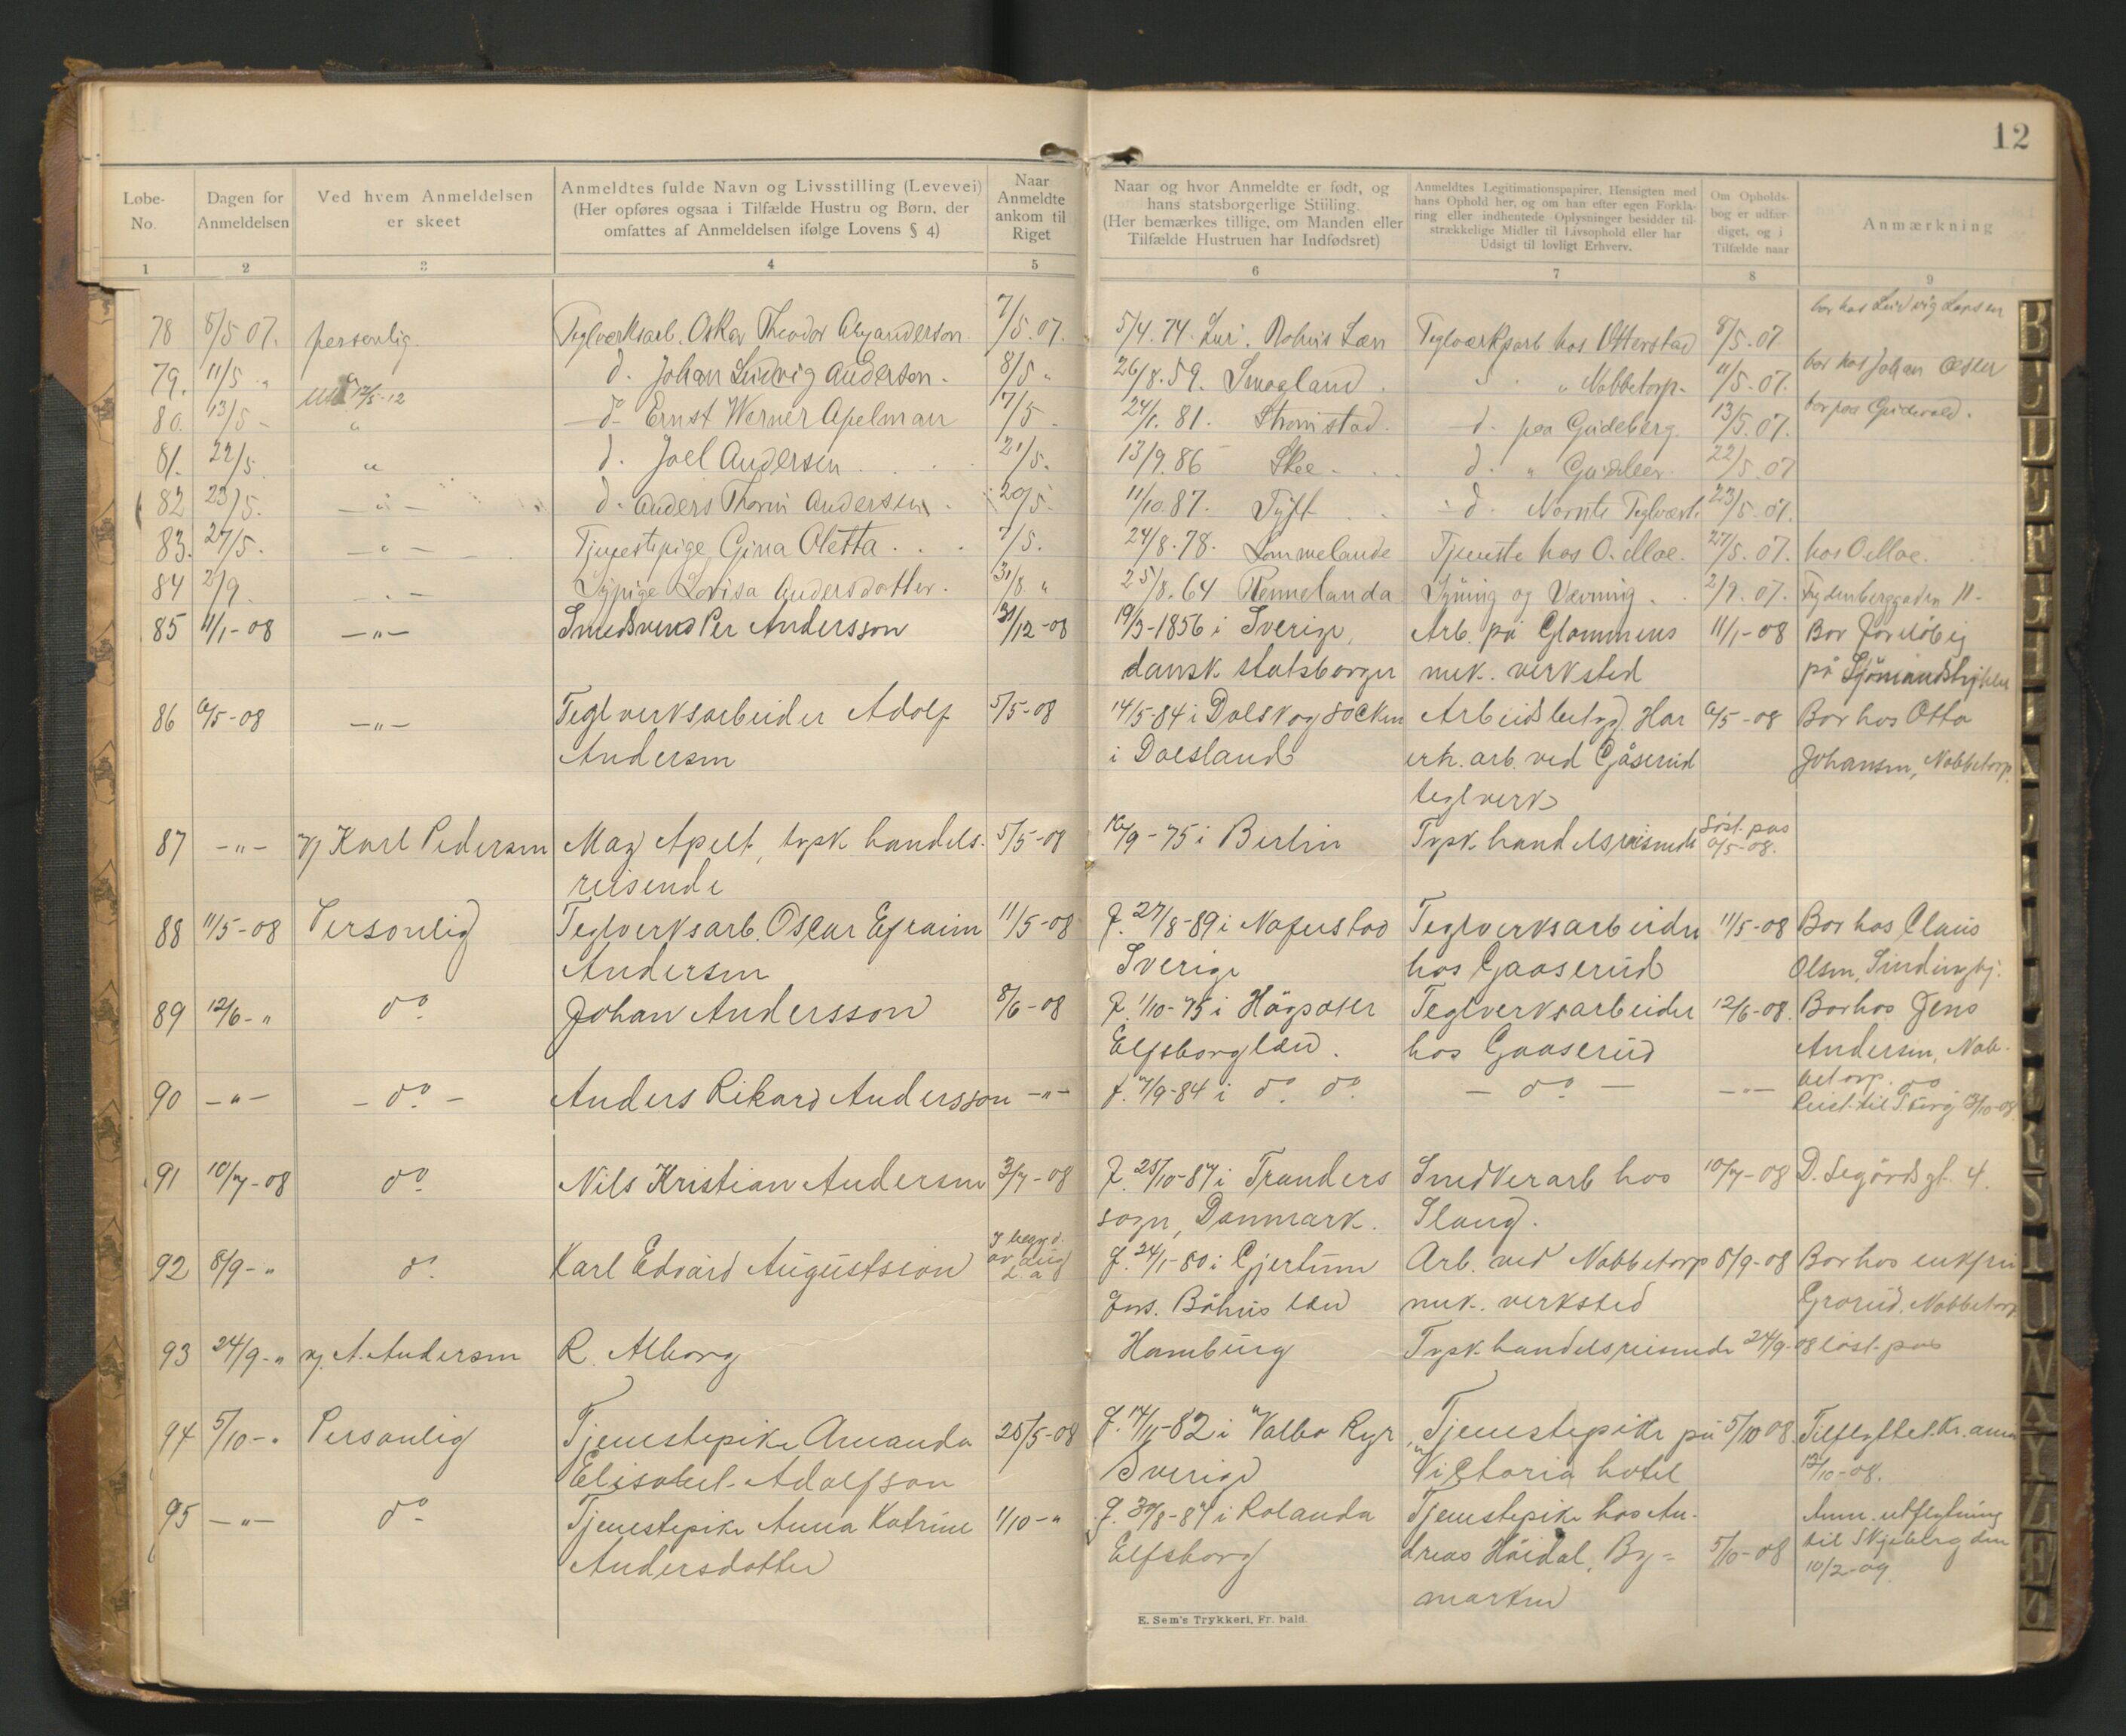 12
Løbe-No.
Dagen for Anmeldelsen
Ved hvem Anmeldelsen er skeet
Anmeldtes fulde Navn og Livsstilling (Levevei) (Her opføres ogsaa i Tilfælde Hustru og Børn, der omfattes af Anmeldelsen ifølge Lovens § 4)
Naar Anmeldte ankom til Riget
Naar og hvor Anmeldte er født, og hans statsborgerlige Stiiling. (Her bemærkes tillige, om Manden eller Tilfælde Hustruen har Indfødsret)
Anmeldtes Legitimationspapirer, Hensigten med hans Ophold her, og om han efter egen Forklaring eller indhentede Oplysninger besidder tilstrækkelige Midler til Livsophold eller har Udsigt til lovligt Erhverv.
Om Opholdsbog er udfærdiget, og i Tilfælde naar
Anmærkning
1 2 3 4 5 6 7 8 9
bor hos Ludvig Larsen
78 8/5 07. personlig Teglværksarb. Oskar Theodor 7/5.07. 5/4.74. Lur. Bohus Læn Teglværksarb hos Otterstad 8/5-07
bor hos Johan Olsen
79. 11/5 " 12/5-12 d. Johan Ludvig Anderson. 8/5 " 26/8.59. Smogland. " Nabbetorp. 11/5-07.
80. 13/5 - " d. Ernst Werner Apelman 7/5 - 24/1.81. Strömstad. d. paa Gudeberg. 13/5.07. bor paa
81. 22/5. " d. Joel Andersen 21/5. 13/9.86 Skee d. " 22/5.07
82 23/5. - " - d. Anders Thorin Andersen. 20/5. 11/10.87. Tyft d. Teglværk 23/5.07.
83. 27/5. - " - Tjenestepige Gina Oletta 7/5. 24/8.78. Lommelande Tjeneste hos O. Moe. 27/5.07. hos O. Moe.
84 2/9. - " - Sypige Lovisa Andersdotter. 31/8 " 25/8.64 Rennelanda Syning og Vævning. 2/9.07. 11-
85 11/1-08 - " - Smedsvend Per Andersson 31/12-08 19/3-1856 i Sverige, Arb. på Glommens 11/1-08 Bor foreløbig
dansk statsborger mek. verksted på
86 6/5-08 - " - Teglverksarbeider Adolf 5/5-08 14/5-84 i Dalskog socken Arbeidsbetyg. Har 6/5-08 Bor hos Otto
Andersen i Dalsland erh. arb. ved Gåserud Johansen, Nabbetorp.
teglverk
87 - " - v/ Karl Pedersen Max Apelt, tysk handels- 5/5-08 16/9-75 i Berlin Tysk handelsreisende løst pas 6/5-08.
reisende
88 11/5-08 Personlig Teglverksarb. Oscar Efraim 11/5-08 f. 27/8-89 i Nafverstad Teglverksarbeider 11/5-08 Bor hos Claus
Andersen Sverige hos Gaaserud Olsen,
89 12/6-" do Johan Andersson 8/6-08 f. 1/10-75 i Högsäter Teglverksarbeider 12/6-08. Bor hos Jens
Elfsborg län. hos Gaaserud Andersen, Nab-
betorp.
90 - " - - do - Anders Rikard Andersson - " - f. 7/9-84 i do. do. - do - - " - do
Reist til Sverig 13/10-08
91 10/7-08 do Nils Kristian Andersen 3/7-08 f. 25/10-87 i Tranders Snedkerarb hos 10/7-08 D. 4.
sogn, Danmark. Slang.
92 8/9-" do. Karl Edvard Augustsson I begynd. av aug. d. a. f. 24/1-80 i Arb. ved Nabbetorp 8/9-08 Bor hos enkefru
Bohus län mek. verksted Grorud, Nabbetorp
93 24/9-" v/ A. Andersen R. Alborg Hamburg Tysk handelsreisende 24/9-08 løst pas
94 5/10-" Personlig Tjenestepike Amanda 25/5-08 f. 14/11-82 i Valbo Ryr Tjenestepike på 5/10 08. Tilflyttet Kr.ania
Elisabet Adolfson Sverige "Victoria" hotel 12/10-08.
95 - " - do Tjenestepike Anna Katrine 1/10-" f. 30/8-87 i Rolanda Tjenestepike hos An-
Andersdotter Elfsborg dreas Höidal, By- 5/10-08 Anm. utflytning
til Skjeberg den
marken 10/2-09.
E. Sem's Trykkeri, Fr. hald.